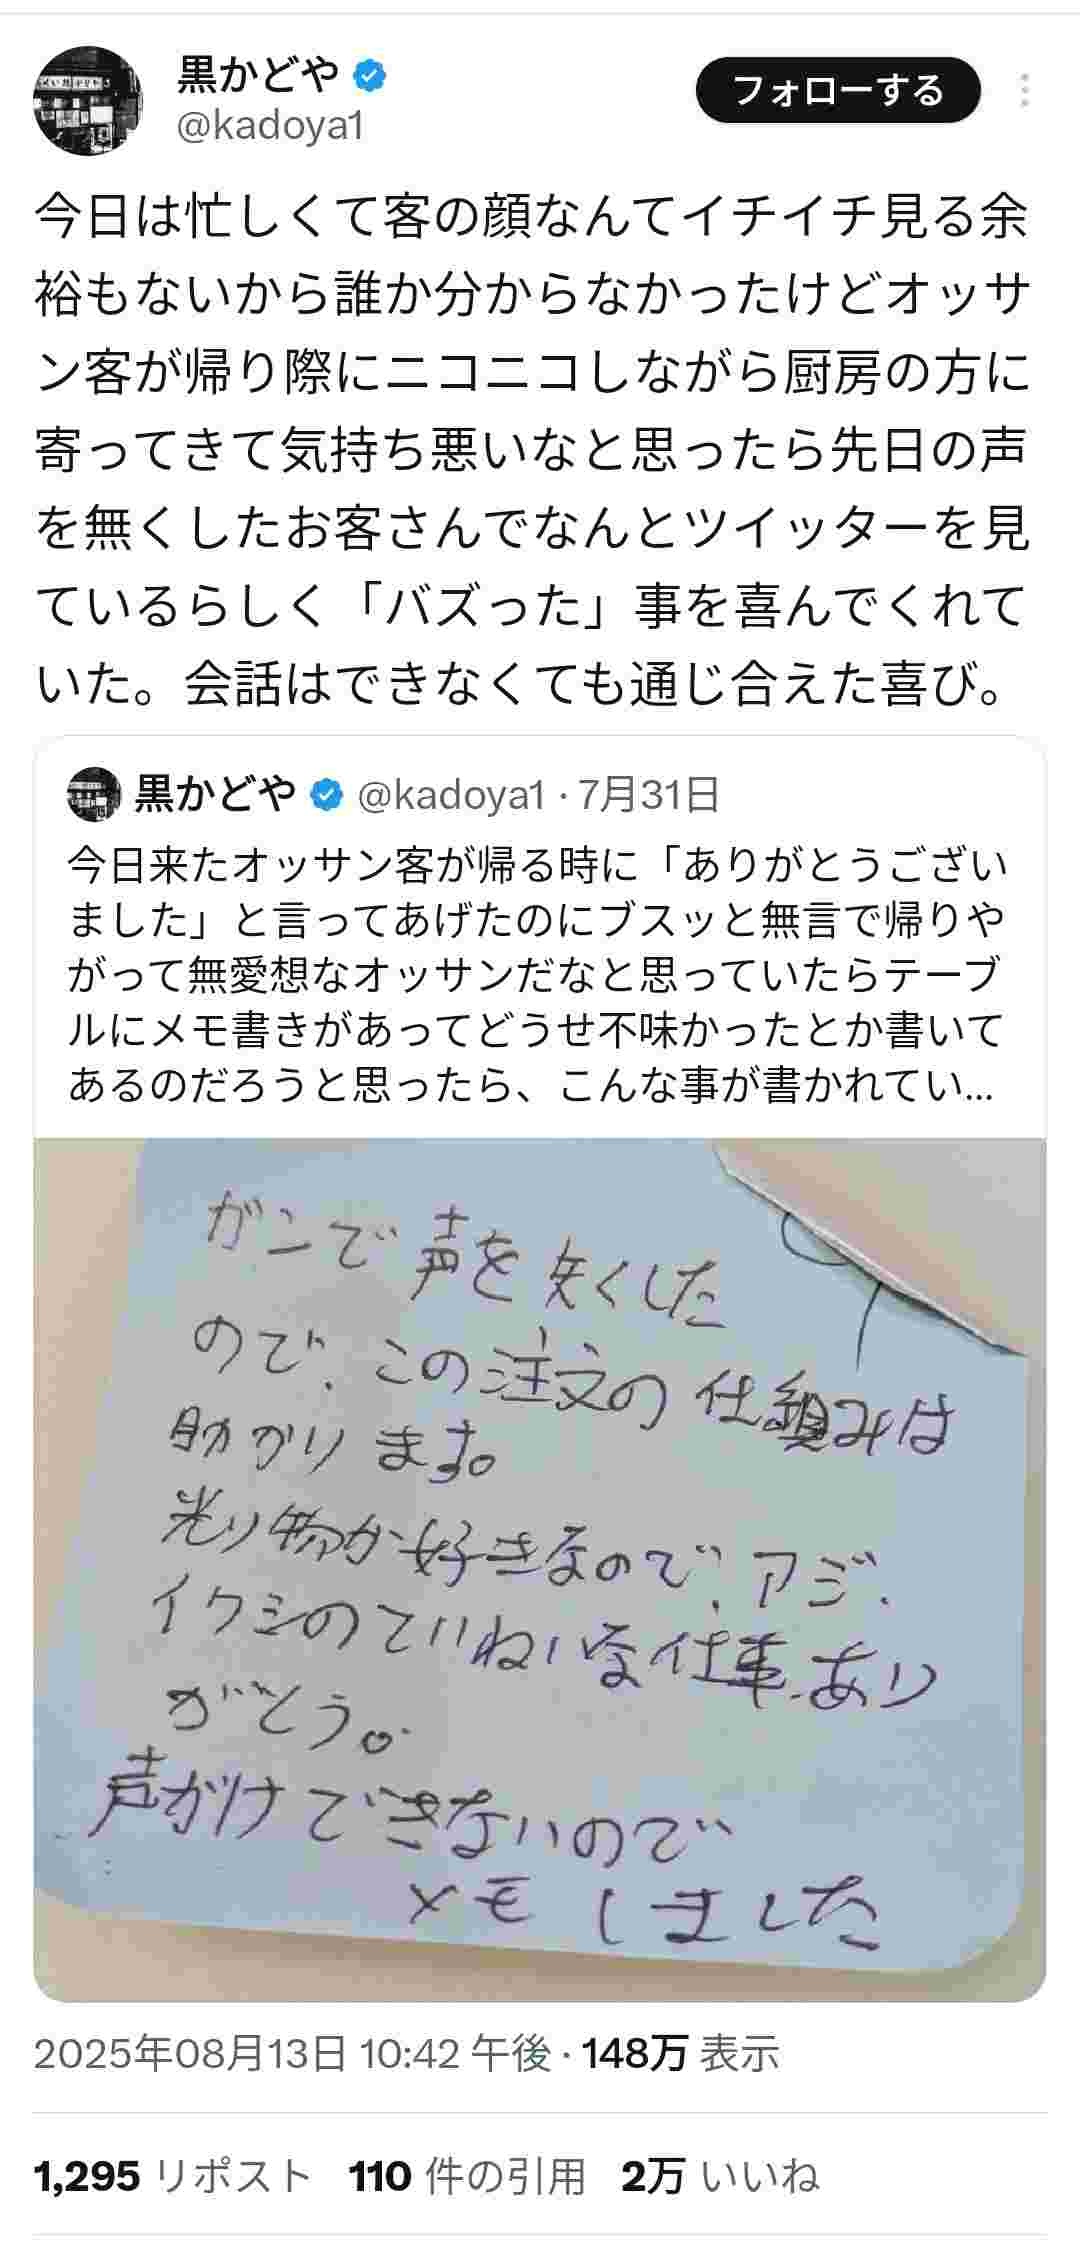 黒かどや
@kadoya1
フォローする
今日は忙しくて客の顔なんてイチイチ見る余
裕もないから誰か分からなかったけどオッサ
ン客が帰り際にニコニコしながら厨房の方に
寄ってきて気持ち悪いなと思ったら先日の声
を無くしたお客さんでなんとツイッターを見
ているらしく「バズった」事を喜んでくれて
いた。会話はできなくても通じ合えた喜び。
黒かどや @kadoya1 · 7月31日
今日来たオッサン客が帰る時に「ありがとうござい
ました」と言ってあげたのにブスッと無言で帰りや
がって無愛想なオッサンだなと思っていたらテーブ
ルにメモ書きがあってどうせ不味かったとか書いて
あるのだろうと思ったら、こんな事が書かれてい...
ガンで声を失くした
ので、この注文の仕組みは
助かります。
光り物が好きなので、アジ、
イワシのていねいな仕事、あり
がとう。
声がけできないので
メモしました
2025年08月13日 10:42 午後 · 148万 表示
1,295 リポスト 110 件の引用 2万 いいね